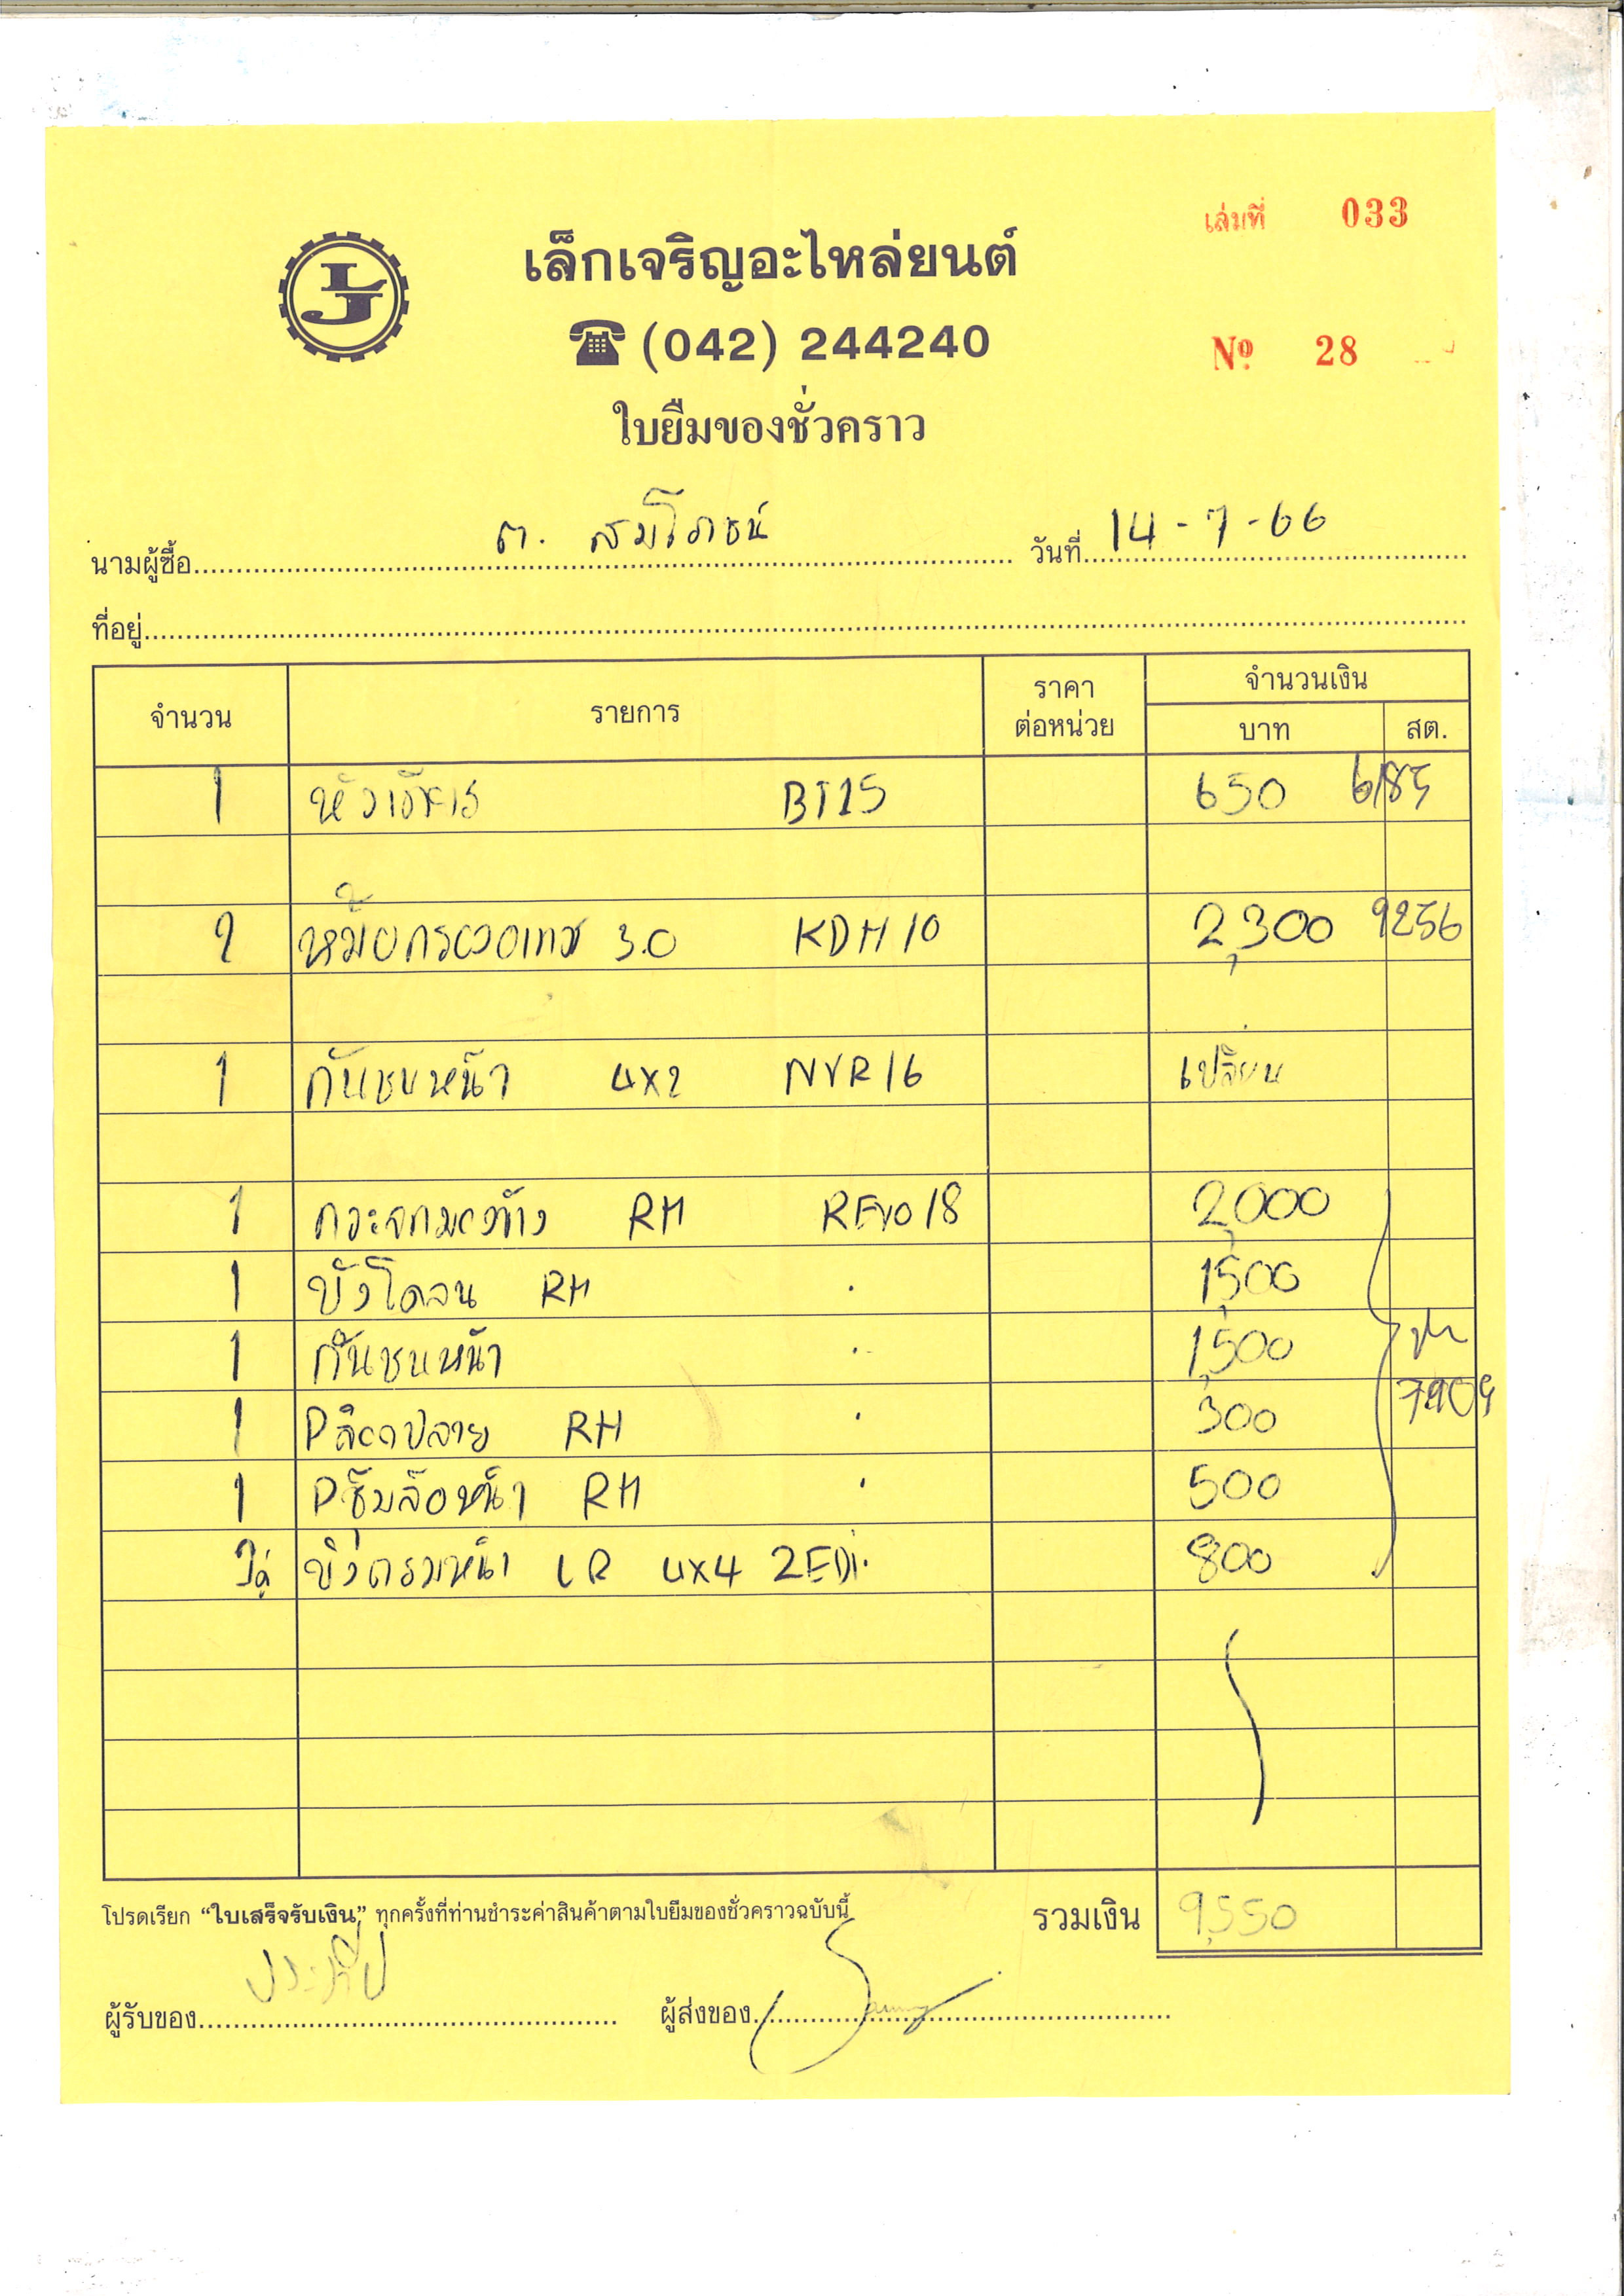 เล่มที่ 033
LJ
เล็กเจริญอะไหล่ยนต์
(042) 244240
Nº 28
ใบยืมของชั่วคราว
นามผู้ซื้อ ต. สมโภชน์ วันที่ 14-7-66
ที่อยู่
จำนวน รายการ ราคาต่อหน่วย จำนวนเงิน
บาท สต.
1 BT25 650 6185
2 3.0 KDH10 2,300 9256
1 กันชนหน้า 4x2 NVR16 เปลี่ยน
1 กระจกมองข้าง RH REVO18 2,000
1 บังโคลน RH 1,500
1 กันชนหน้า 1,500
1 Pล๊อคปลาย RH 300 7909
1 Pซุ้มล้อหน้า RH 500
1คู่ หน้า LR 4x4 800
โปรดเรียก “ใบเสร็จรับเงิน” ทุกครั้งที่ท่านชำระค่าสินค้าตามใบยืมของชั่วคราวฉบับนี้ รวมเงิน 9,550
ผู้รับของ ประทีป ผู้ส่งของ